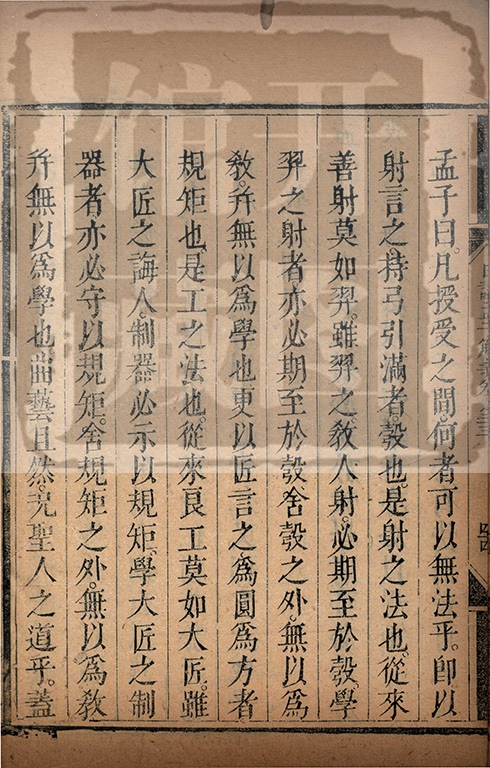 孟子曰。凡授受之間。何者可以無法乎。卽以
射言之。持弓引滿者。彀也。是射之法也。從來
善射莫如羿。雖羿之敎人射。必期至於彀。學
羿之射者亦必期至於彀。舍彀之外。無以爲
敎。幷無以爲學也。更以匠言之。爲圓爲方者
規矩也。是工之法也。從來良工莫如大匠。雖
大匠之誨人。制器必示以規矩。學大匠之制
器者亦必守以規矩。舍規矩之外。無以爲敎
幷無以爲學也。曲藝且然。况聖人之道乎。蓋